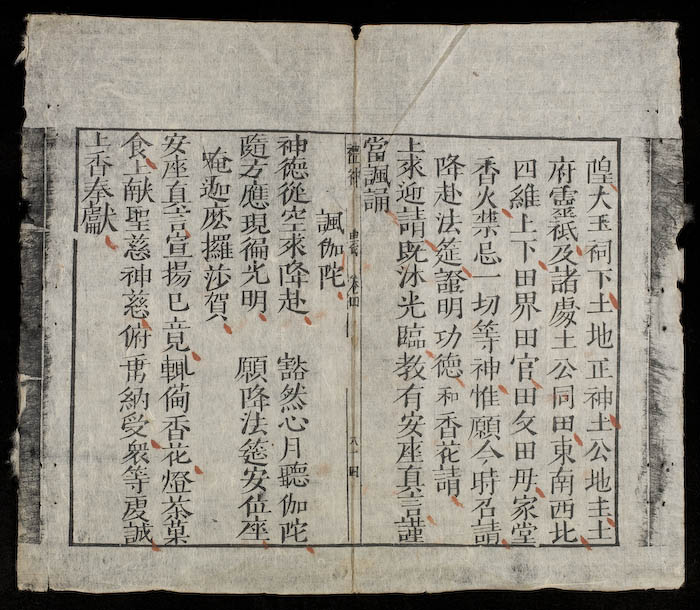 隍大王祠下土地正神土公地主土
府靈祇及諸處土公同田東南西北
四維上下田界田官田父田母家堂
香火禁忌一切等神惟願今時召請
降赴法筵證明功德 和香花請
上来迎請既沐光臨教有安座真言謹
當諷誦
卷四 八十四
諷伽陀
神德從空来降赴 豁然心月聽伽陀
隨方應現徧光明 願降法筵安位座
唵迦麽攞莎賀
安座真言宣揚已竟輒俻香花燈茶菓
食上献聖慈神慈俯垂納受衆等虔誠
上香奉獻